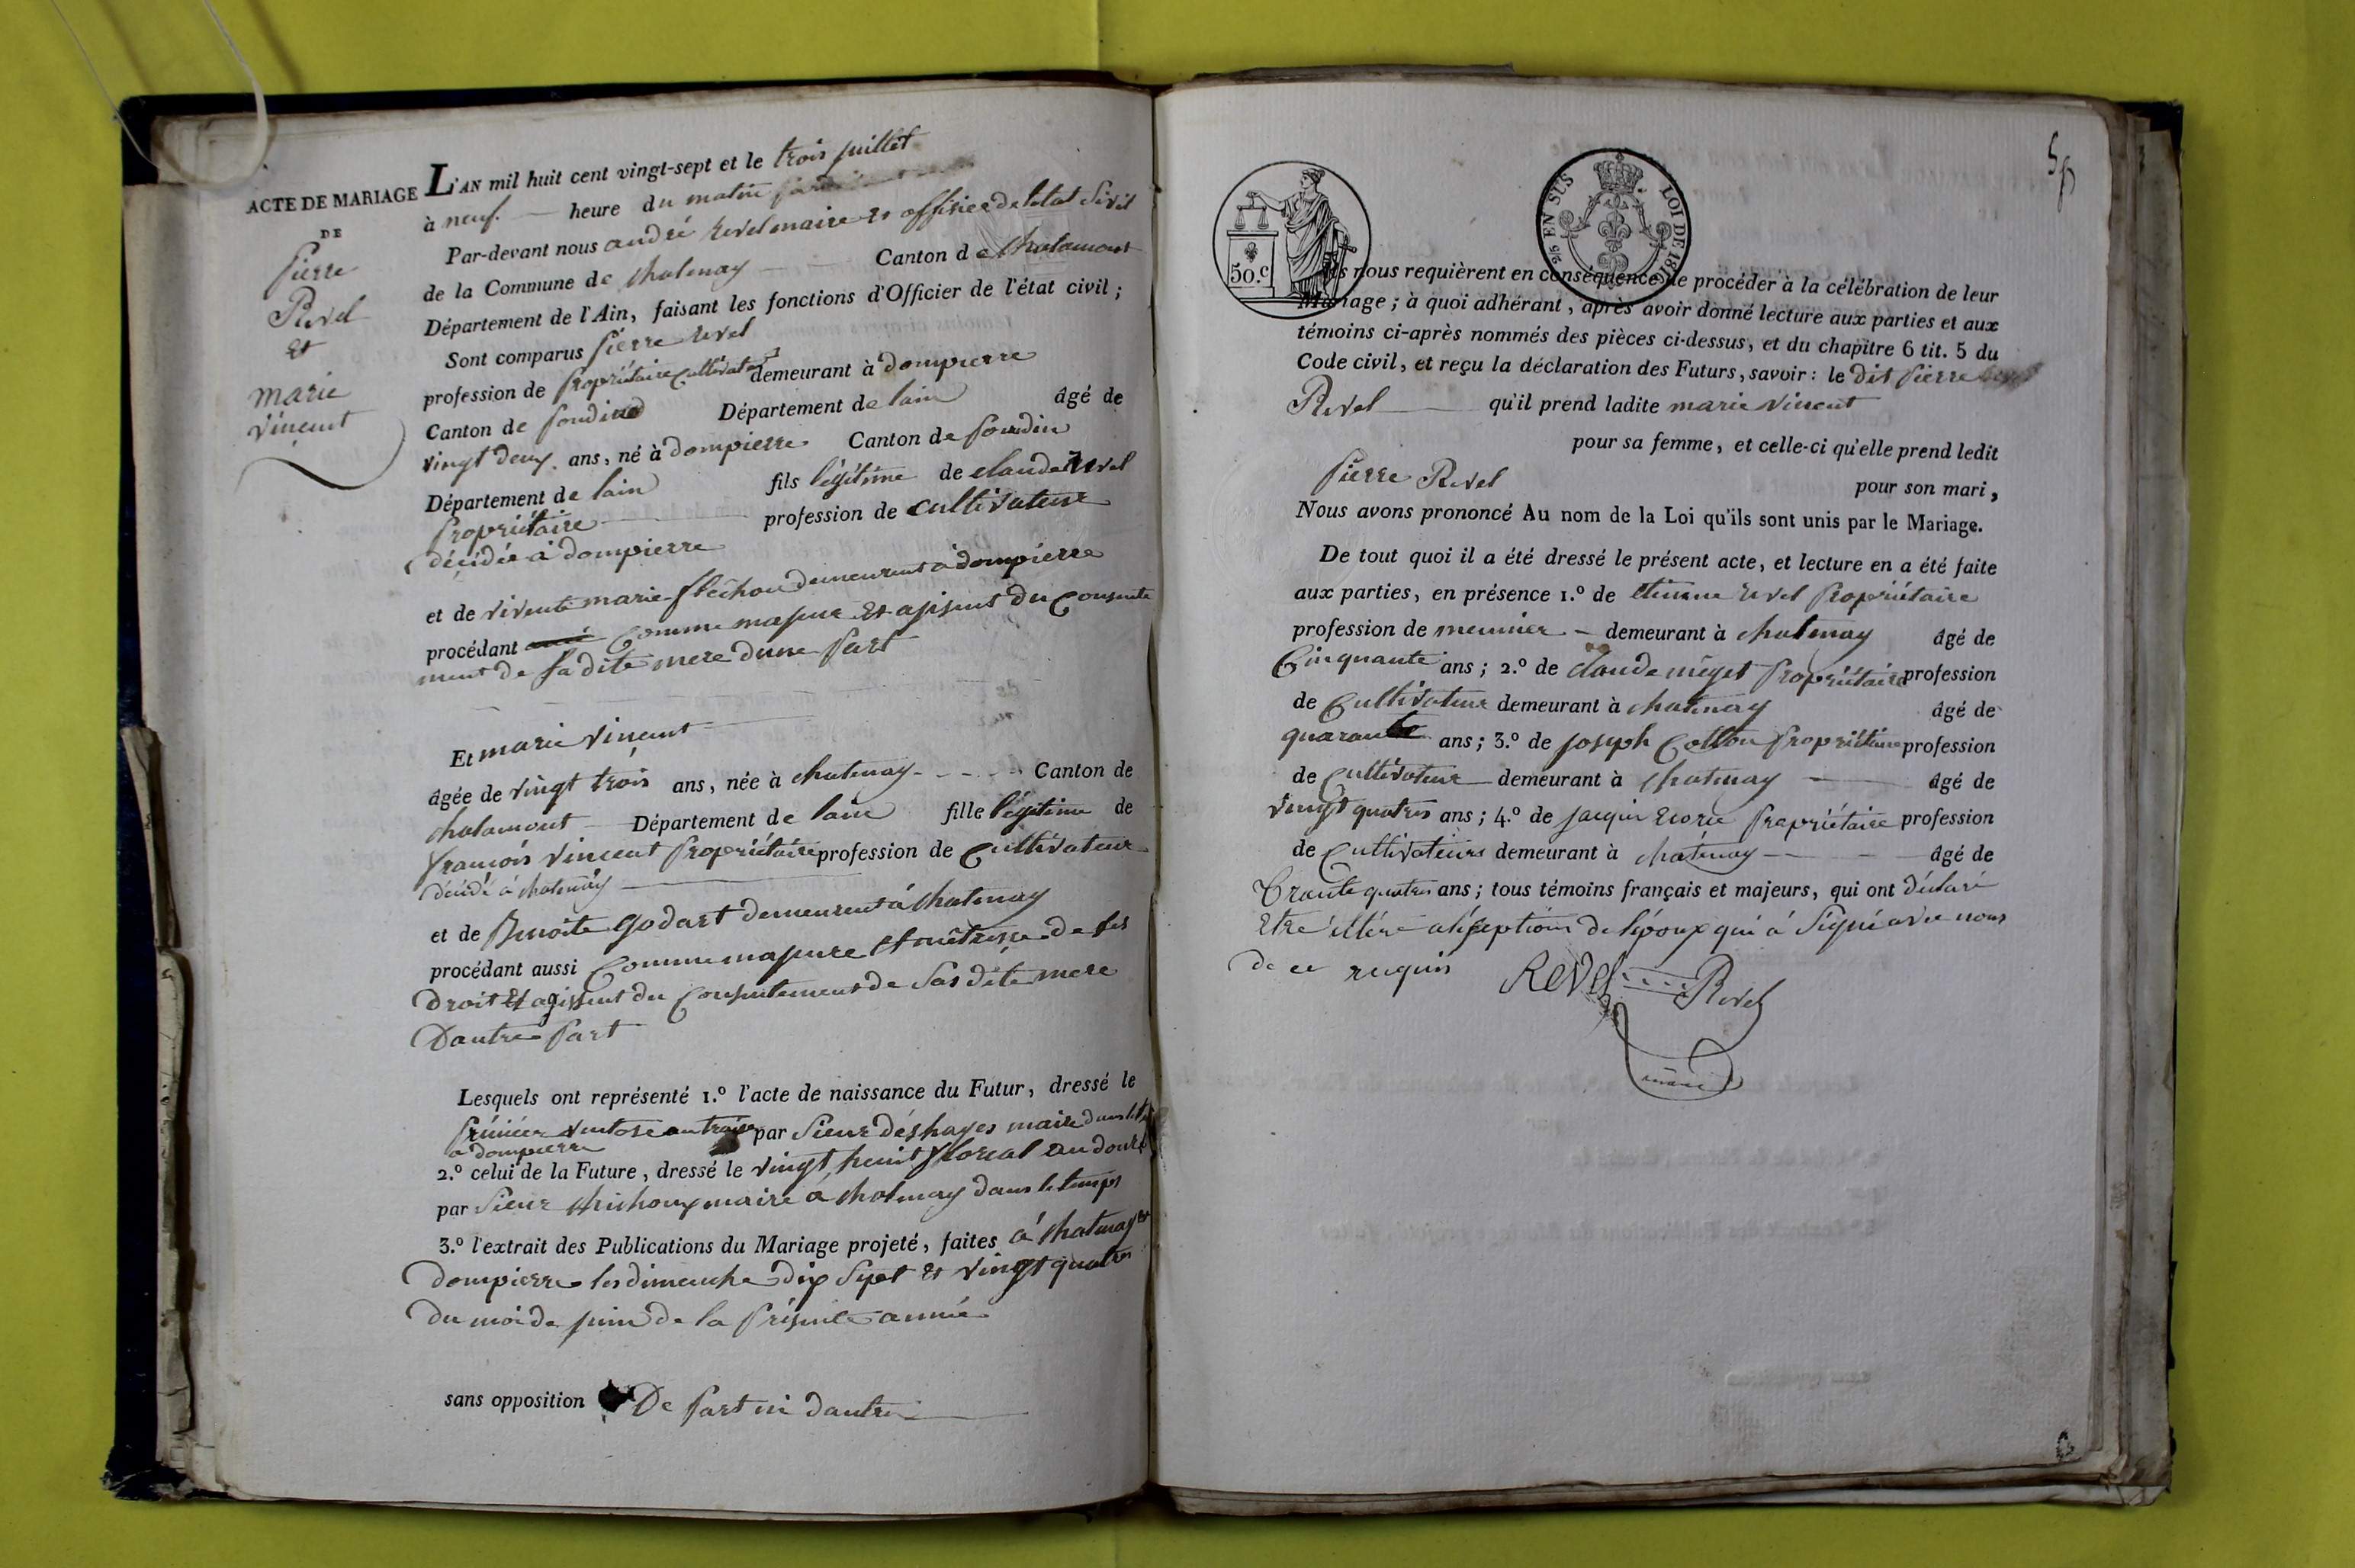 ACTE DE MARIAGE
DE
Pierre
Revel
Et
marie
vincent
L'AN mil huit cent vingt-sept et le trois juillet
à neuf heure du matin
Par-devant nous andré revel maire et offisier de letat Sivil
de la Commune de chatenay Canton de chalamont
Département de l'Ain, faisant les fonctions d'Officier de l'état civil ;
Sont comparus pierre revel
profession de propriétaire Cultivateur demeurant à dompierre
Canton de Département de lain âgé de
vingt deux ans, né à dompierre Canton de
Département de lain fils légitime de claude revel
propriétaire profession de cultivateur
décédée à dompierre
et de vivente marie fléchou demeurent à dompierre
procédant Comme majeur Et agisent du Consente
ment de sa dite mere dune part
Et marie vincent
âgée de vingt trois ans, née à chatenay Canton de
chalamont Département de lain fille légitime de
françois vincent propriétaire profession de Cultivateur
décédé à chatenay
et de Benoite godart demeurent à chatenay
procédant aussi Comme majeure Et mêtresse de ses
Droit Et agissent du Consentement de Sas dite mere
Dautre part
Lesquels ont représenté 1.º l'acte de naissance du Futur, dressé le
prémier ventose an treize par Sieur déshayes maire dans le
à dompierre
2.º celui de la Future, dressé le vingt huit floreal an douze
par Sieur maire à chatenay dans le temps
3.º l'extrait des Publications du Mariage projeté, faites à chatenay et
dompierre les dimenche dix Sept Et vingt quatre
du moi de juin de la présente année
sans opposition De part ni dautre
50.C
2/5 EN SUS LOI DE 1816
Ils nous requièrent en conséquence de procéder à la célébration de leur
Mariage ; à quoi adhérant, après avoir donné lecture aux parties et aux
témoins ci-après nommés des pièces ci-dessus, et du chapitre 6 tit. 5 du
Code civil, et reçu la déclaration des Futurs, savoir : le dit pierre
Revel qu'il prend ladite marie vincent
pour sa femme, et celle-ci qu'elle prend ledit
pierre Revel pour son mari,
Nous avons prononcé Au nom de la Loi qu'ils sont unis par le Mariage.
De tout quoi il a été dressé le présent acte, et lecture en a été faite
aux parties, en présence 1.º de etienne revel propriétaire
profession de meunier demeurant à chatenay âgé de
Cinquante ans ; 2.º de claude propriétaire profession
de Cultivateur demeurant à chatenay âgé de
quarante ans ; 3.º de joseph Cotton propriétaire profession
de Cultivateur demeurant à chatenay âgé de
vingt quatres ans ; 4.º de propriétaire profession
de Cultivateurs demeurant à chatenay âgé de
Trante quatres ans ; tous témoins français et majeurs, qui ont déclaré
Etre de lépoux qui à Signé avec nous
de ce requis Revel Revel
maire